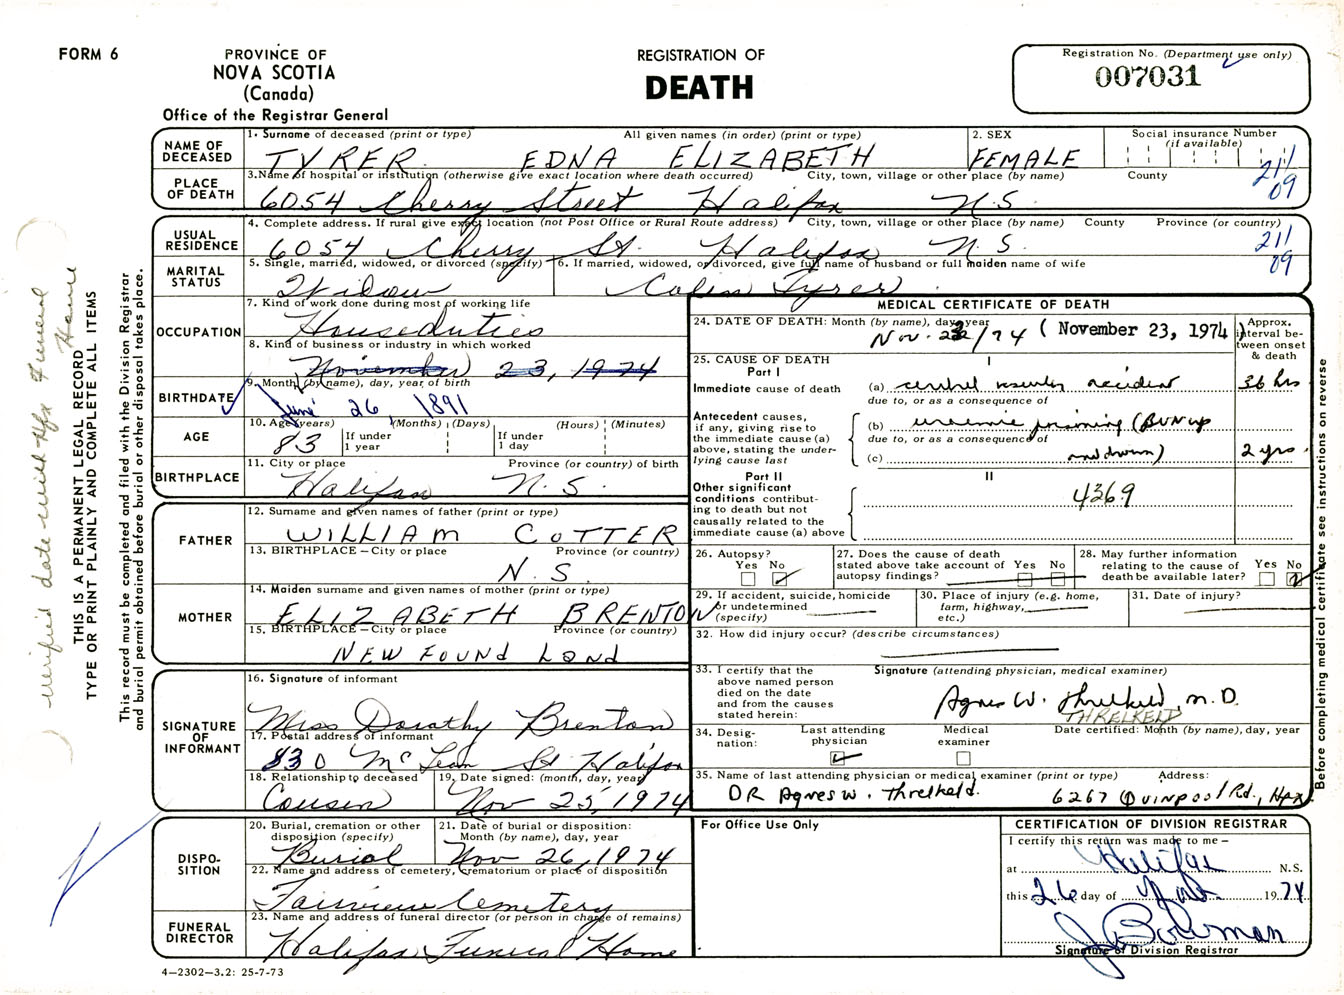 FORM 6
PROVINCE OF
NOVA SCOTIA
(Canada)
Office of the Registrar General
REGISTRATION OF
DEATH
Registration No. (Department use only)
007031
NAME OF DECEASED
1. Surname of deceased (print or type) All given names (in order) (print or type)
TYRER EDNA ELIZABETH
2. SEX
FEMALE
Social insurance Number
(if available)
PLACE OF DEATH
3. Name of hospital or institution (otherwise give exact location where death occurred) City, town, village or other place (by name) County
6054 Cherry Street Halifax N.S.
211
09
USUAL RESIDENCE
4. Complete address. If rural give exact location (not Post Office or Rural Route address) City, town, village or other place (by name) County Province (or country)
6054 Cherry St. Halifax N.S.
211
09
MARITAL STATUS
5. Single, married, widowed, or divorced (specify)
Widow
6. If married, widowed, or divorced, give full name of husband or full maiden name of wife
Colin Tyrer
OCCUPATION
7. Kind of work done during most of working life
Houseduties
8. Kind of business or industry in which worked
November 23, 1974
BIRTHDATE
9. Month (by name), day, year of birth
June 26, 1891
AGE
10. Age (years) (Months) (Days) (Hours) (Minutes)
83
If under 1 year
If under 1 day
BIRTHPLACE
11. City or place Province (or country) of birth
Halifax N.S.
FATHER
12. Surname and given names of father (print or type)
WILLIAM COTTER
13. BIRTHPLACE – City or place Province (or country)
N.S.
MOTHER
14. Maiden surname and given names of mother (print or type)
ELIZABETH BRENTON
15. BIRTHPLACE – City or place Province (or country)
NEWFOUND LAND
SIGNATURE OF INFORMANT
16. Signature of informant
Miss Dorothy Brenton
17. Postal address of informant
830 McLean St Halifax
18. Relationship to deceased
Cousin
19. Date signed: (month, day, year)
Nov 25, 1974
DISPO-
SITION
20. Burial, cremation or other disposition (specify)
Burial
21. Date of burial or disposition: Month (by name), day, year
Nov 26, 1974
22. Name and address of cemetery, crematorium or place of disposition
Fairview Cemetery
FUNERAL DIRECTOR
23. Name and address of funeral director (or person in charge of remains)
Halifax Funeral Home
4–2302–3.2: 25-7-73
MEDICAL CERTIFICATE OF DEATH
24. DATE OF DEATH: Month (by name), day, year
Nov. 23/74 (November 23, 1974)
Approx. interval be-
tween onset & death
25. CAUSE OF DEATH
Part I
I
Immediate cause of death
(a) cerebral vascular accident 36 hrs
due to, or as a consequence of
Antecedent causes, if any, giving rise to the immediate cause (a) above, stating the under-
lying cause last
(b) uremic poisoning (BUN up
due to, or as a consequence of
(c) and down) 2 yrs.
Part II
II
Other significant conditions contribut-
ing to death but not causally related to the immediate cause (a) above
4369
26. Autopsy?
Yes No
27. Does the cause of death stated above take account of autopsy findings?
Yes No
28. May further information relating to the cause of death be available later?
Yes No
29. If accident, suicide, homicide or undetermined (specify)
30. Place of injury (e.g. home, farm, highway, etc.)
31. Date of injury?
32. How did injury occur? (describe circumstances)
33. I certify that the above named person died on the date and from the causes stated herein:
Signature (attending physician, medical examiner)
Agnes W. Threlkeld, M.D.
THRELKELD
34. Desig-
nation:
Last attending physician
Medical examiner
Date certified: Month (by name), day, year
35. Name of last attending physician or medical examiner (print or type) Address:
DR Agnes W. Threlkeld. 6267 Quinpool Rd., Hfx
For Office Use Only
CERTIFICATION OF DIVISION REGISTRAR
I certify this return was made to me –
at Halifax N.S.
this 26 day of Nov. 1974
J. Bowman
Signature of Division Registrar
verified date with Hfx Funeral Home
THIS IS A PERMANENT LEGAL RECORD
TYPE OR PRINT PLAINLY AND COMPLETE ALL ITEMS
This record must be completed and filed with the Division Registrar
and burial permit obtained before burial or other disposal takes place.
Before completing medical certificate see instructions on reverse